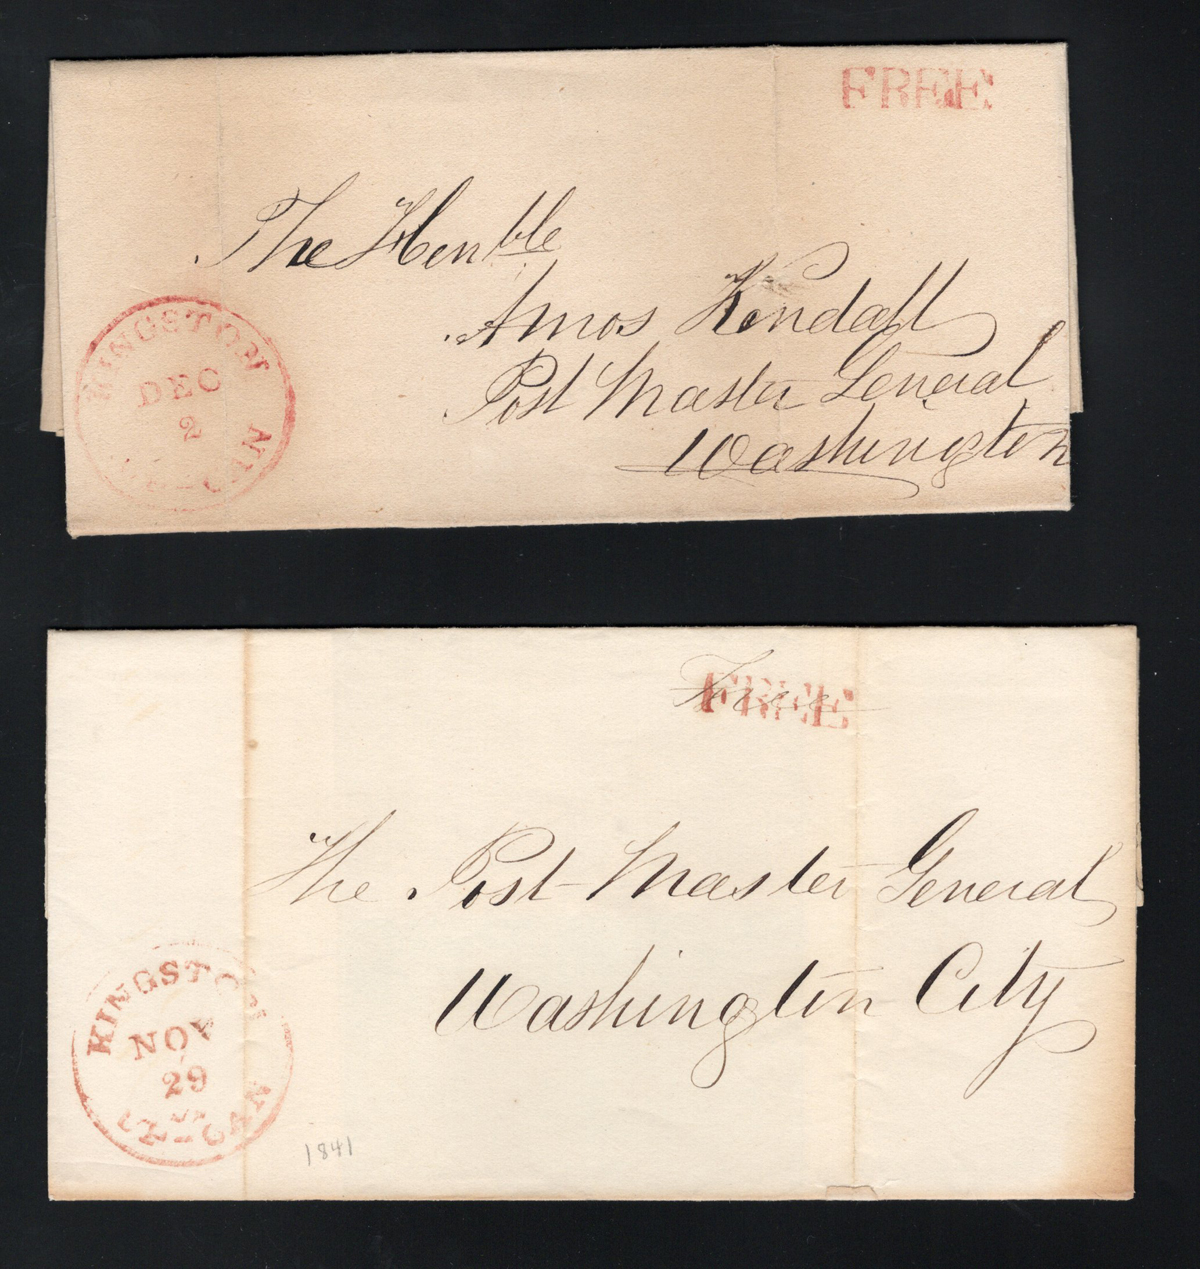 FREE
The Honble
Amos Kendall
Post Master General
Washington
KINGSTON
DEC
2
Free
FREE
The Post Master General
Washington City
KINGSTON
NOV
29
1841